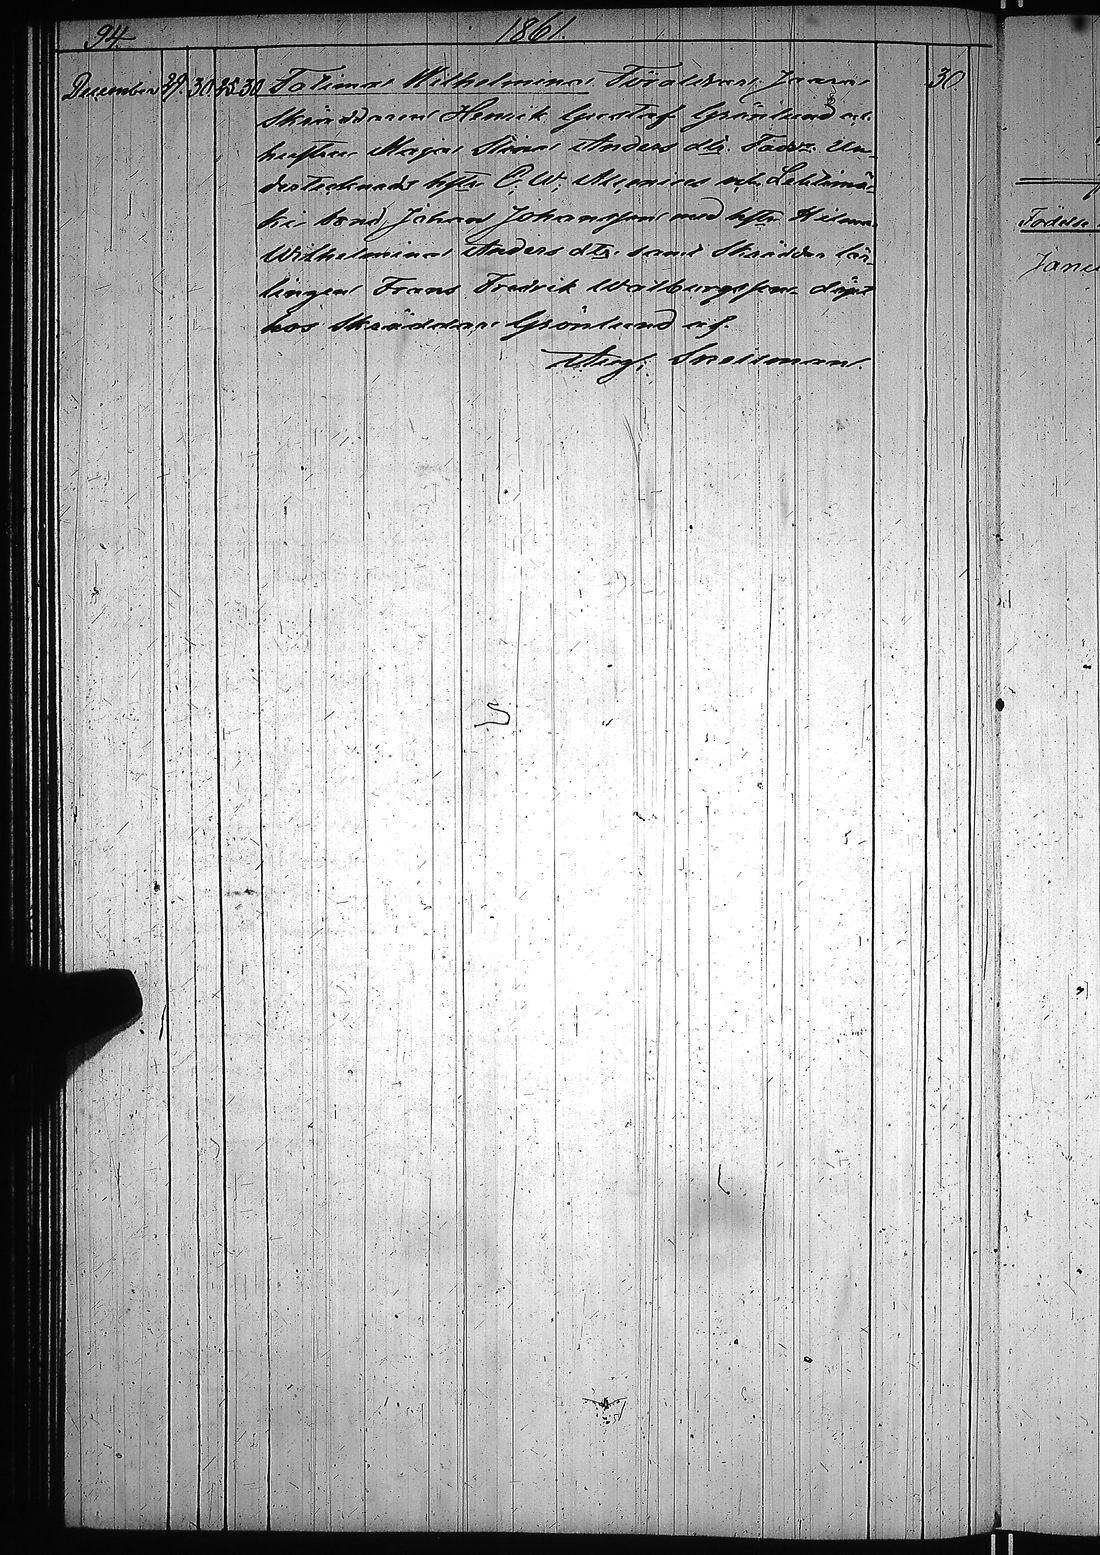 94.
1861.
December 29. 30. 25. 30. Tatima Wilhelmina. Föräldrar: 30
Skräddaren Henrik Gustaf Grönlund o.
hustru Maja Stina Anders dtr. Faddr. Un-
dertecknads hstr C. W. Lehtimä-
ki bond. Johan Johansson med hstr Hilma
Wilhelmina Anders dtr. samt Skräddar lär-
lingen Frans Fredrik Walburgsson. döpt
hos Skräddare Grönlund af.
Aug. Snellman.
Födelse
Janu